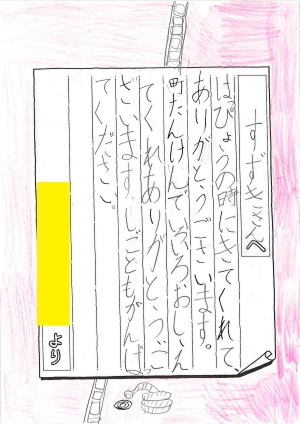 すずきさんへ
はっぴょうの時にきてくれて、
ありがとうございます。
町たんけんでいろいろおしえ
てくれありがとうご
ざいます。しごともがんばっ
てください。
より